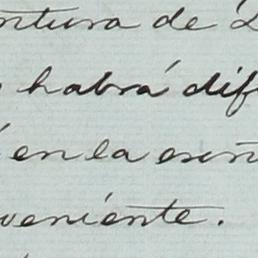 ntura de
habrá dif
en la escri
veniente.